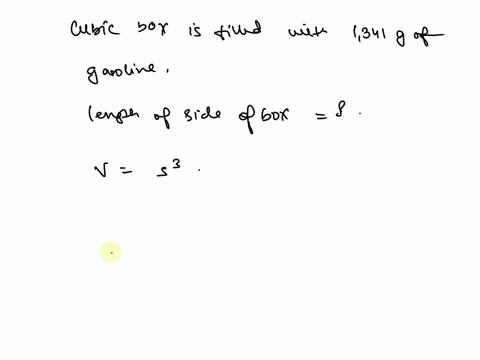 Cubic box is filled with 1,341 g of
gasoline.
length of side of box = s.
V = s³.